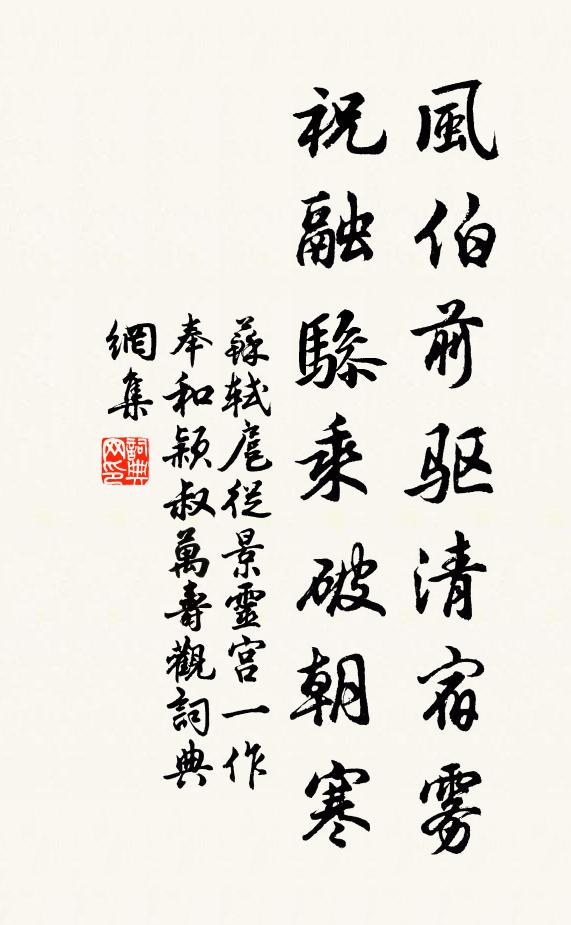 風伯前驱清宿雾
祝融驂乘破朝寒
蘇軾扈從景靈宮一作
奉和穎叔萬壽觀詞典
網集
詞典
网印